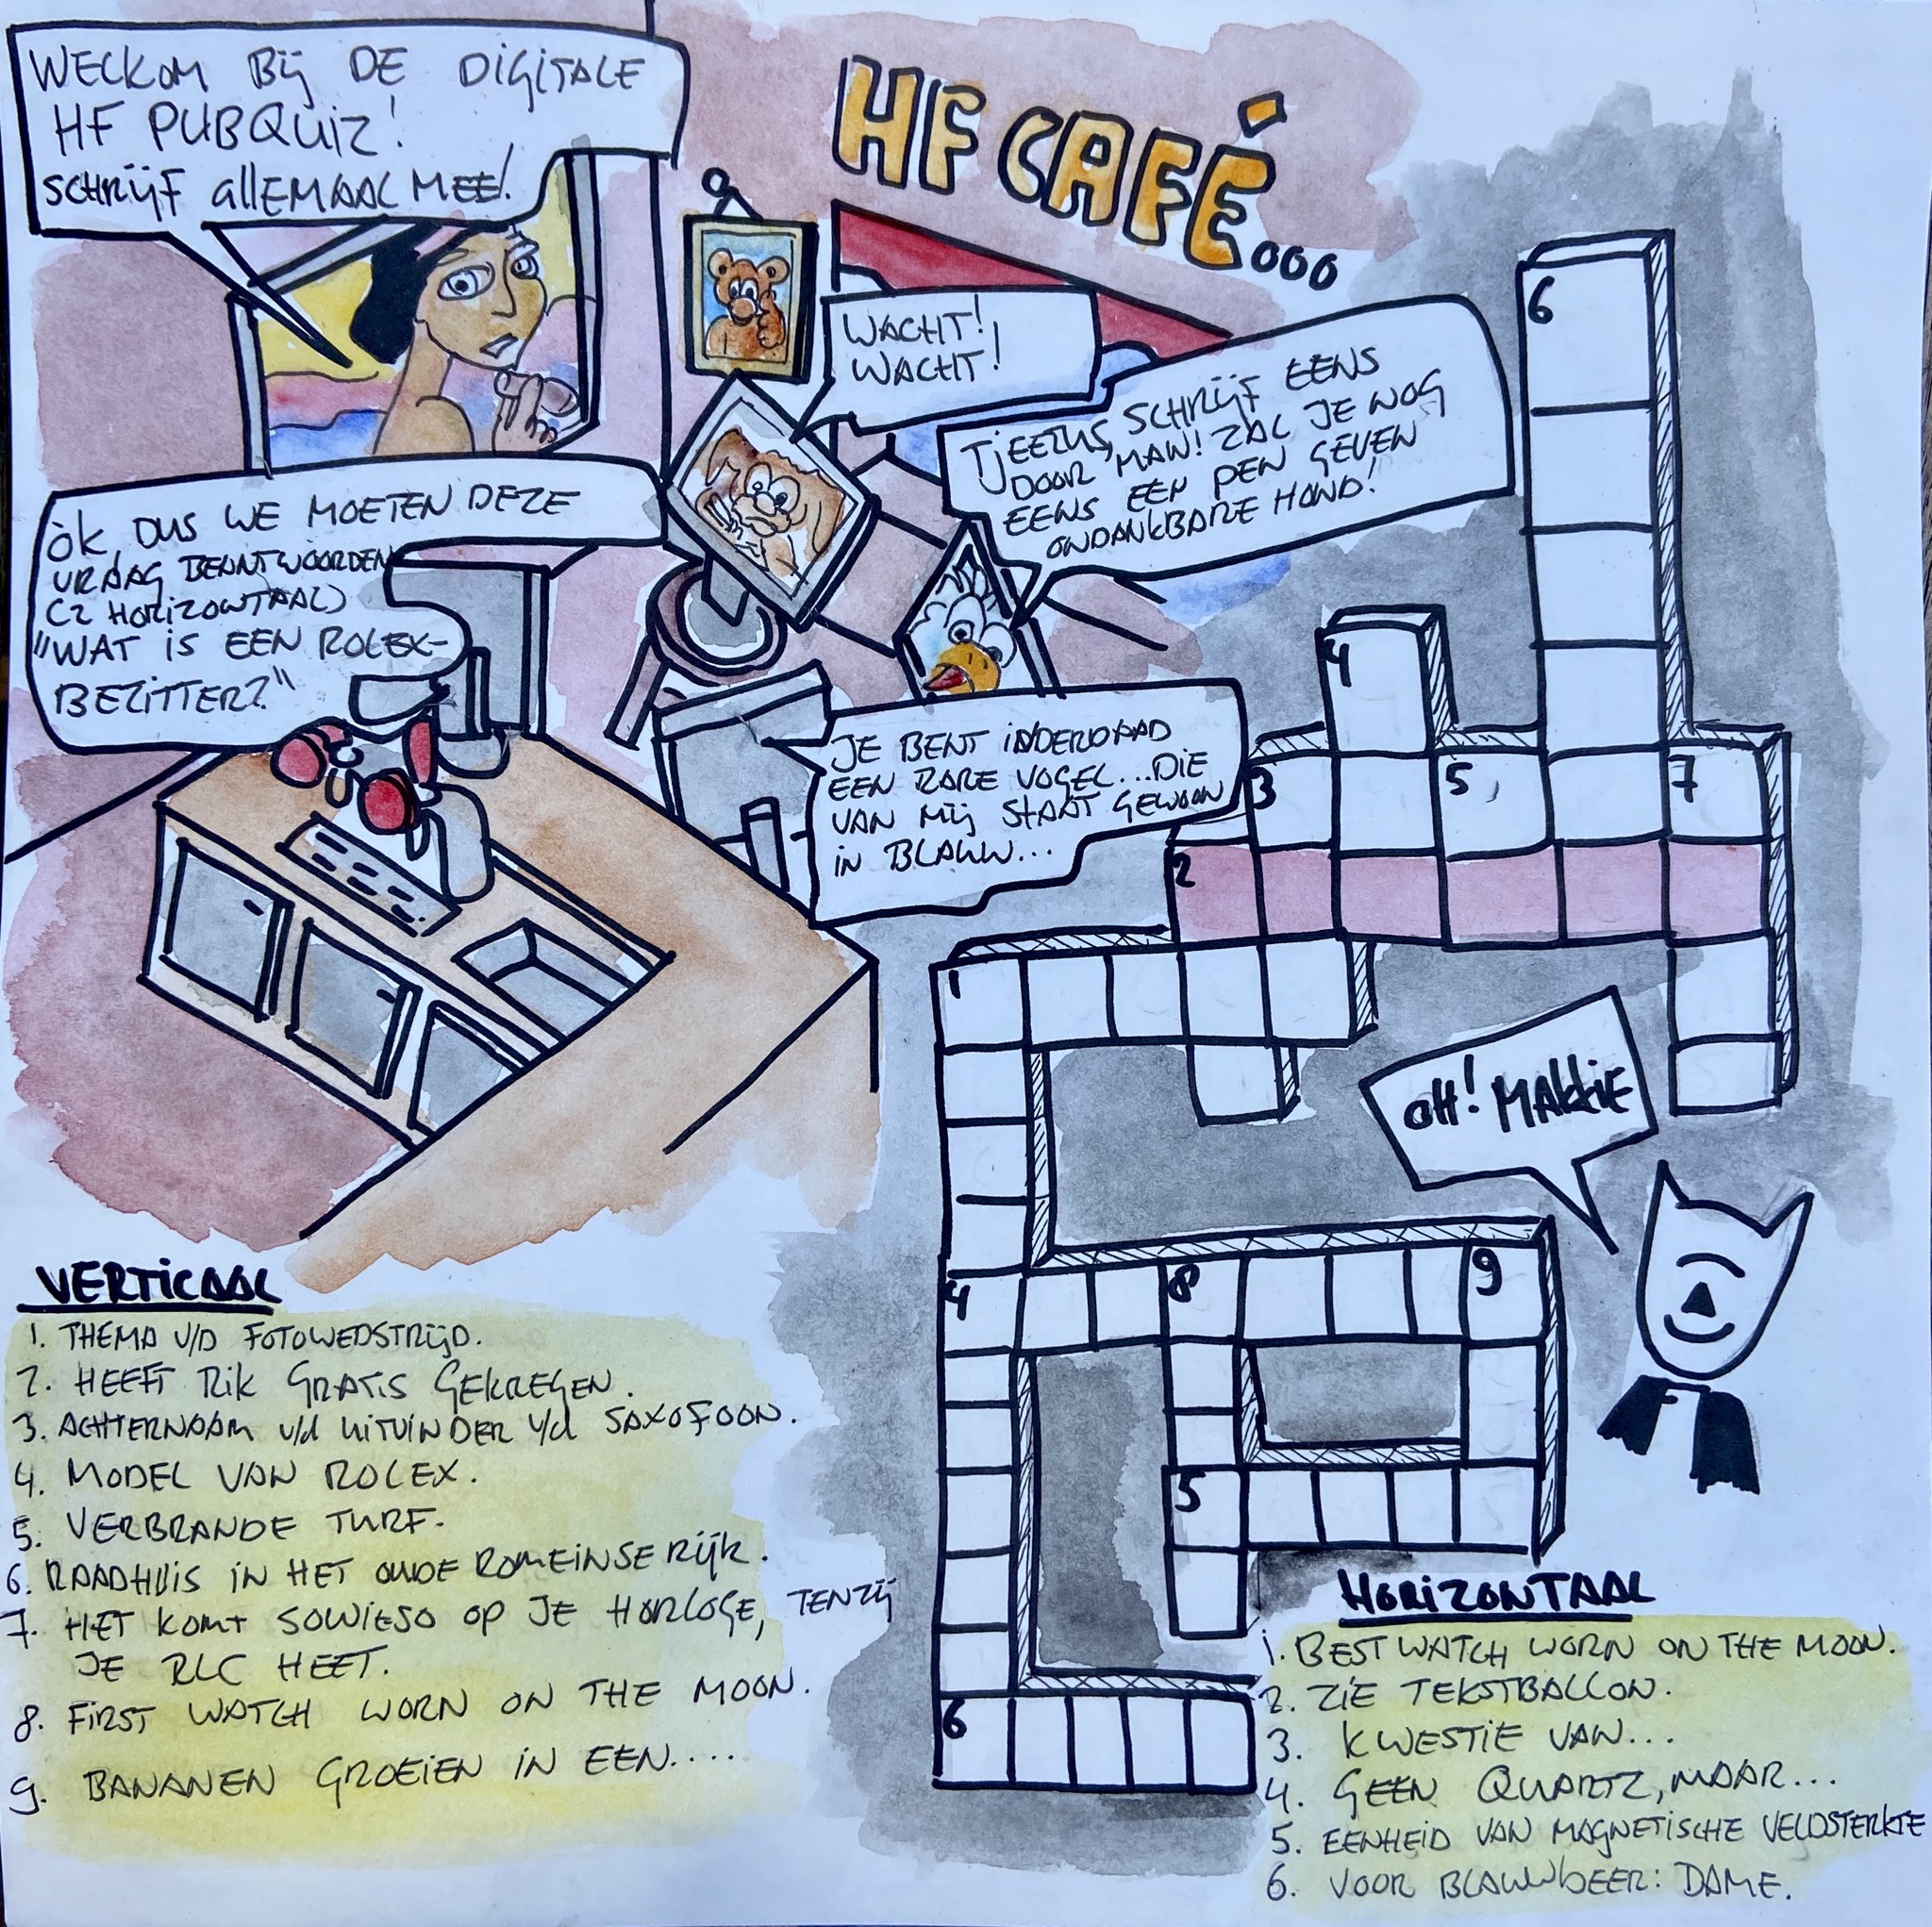 WELKOM BIJ DE DIGITALE
HF PUBQUIZ!
SCHRIJF ALLEMAAL MEE!
HF CAFÉ...
WACHT!
WACHT!
TJEEZUS, SCHRIJF EENS
DOOR MAN! ZAL JE NOG
EENS EEN PEN GEVEN
ONDANKBARE HOND!
OK, DUS WE MOETEN DEZE
VRAAG BEANTWOORDEN
(2 HORIZONTAAL)
"WAT IS EEN ROLEX-
BEZITTER?"
JE BENT INDERDAAD
EEN RARE VOGEL...DIE
VAN MIJ STAAT GEWOON
IN BLAUW...
6
4
3
5
7
2
1
OH! MAKKIE
4
8
9
5
6
VERTICAAL
1. THEMA V/D FOTOWEDSTRIJD.
2. HEEFT RIK GRATIS GEKREGEN.
3. ACHTERNAAM V/d UITVINDER V/d SAXOFOON.
4. MODEL VAN ROLEX.
5. VERBRANDE TURF.
6. RAADHUIS IN HET OUDE ROMEINSE RIJK.
7. HET KOMT SOWIESO OP JE HORLOGE, TENZIJ
JE RLC HEET.
8. FIRST WATCH WORN ON THE MOON.
9. BANANEN GROEIEN IN EEN....
HORIZONTAAL
1. BEST WATCH WORN ON THE MOON.
2. ZIE TEKSTBALLON.
3. KWESTIE VAN...
4. GEEN QUARTZ, MAAR...
5. EENHEID VAN MAGNETISCHE VELDSTERKTE
6. VOOR BLAUWBEER: DAME.